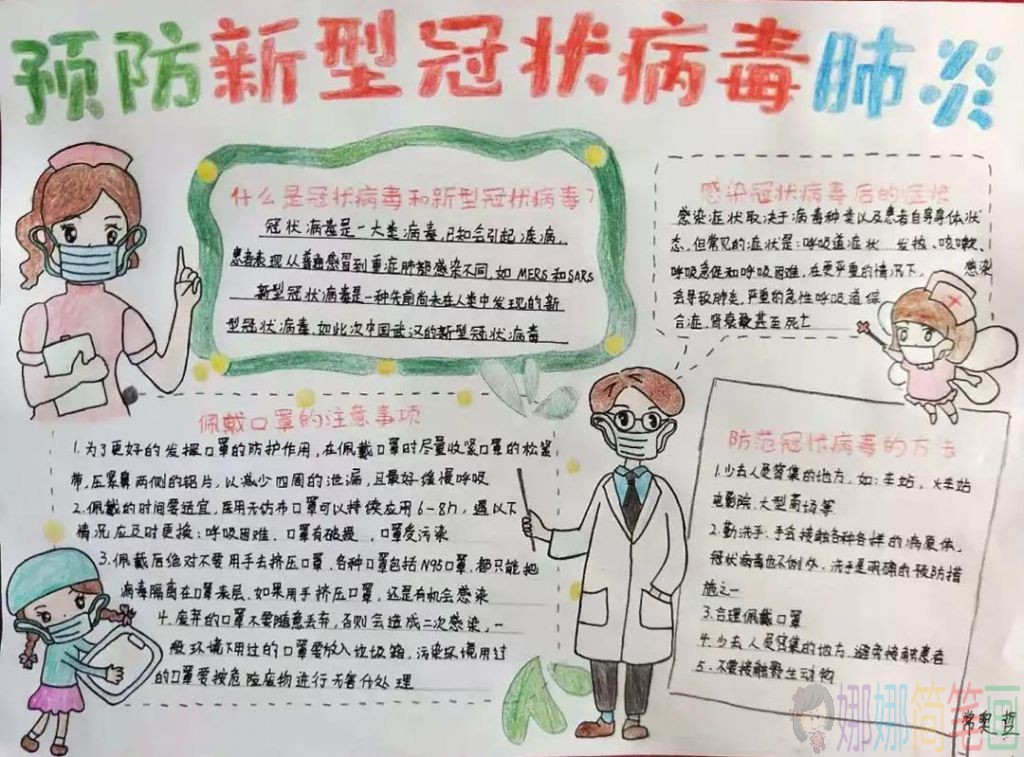 预防新型冠状病毒肺炎
什么是冠状病毒和新型冠状病毒?
冠状病毒是一大类病毒,已知会引起疾病,
患者表现从普通感冒到重症肺部感染不同,如MERS和SARS
新型冠状病毒是一种先前尚未在人类中发现的新
型冠状病毒,如此次中国武汉的新型冠状病毒
感染冠状病毒后的症状
感染症状取决于病毒种类以及患者自身身体状
态,但常见的症状是:呼吸道症状 发热、咳嗽、
呼吸急促和呼吸困难,在更严重的情况下, 感染
会导致肺炎,严重的急性呼吸道综
合症,肾衰竭甚至死亡
佩戴口罩的注意事项
1.为了更好的发挥口罩的防护作用,在佩戴口罩时尽量收紧口罩的松紧
带,压紧鼻两侧的铝片,以减少四周的泄漏,且最好缓慢呼吸
2.佩戴的时间要适宜,医用无纺布口罩可以持续应用6-8h,遇以下
情况应及时更换:呼吸困难、口罩有破损、口罩受污染
3.佩戴后绝对不要用手去挤压口罩,各种口罩包括N95口罩,都只能把
病毒隔离在口罩表层,如果用手挤压口罩,还是有机会感染
4.废弃的口罩不要随意丢弃,否则会造成二次感染,一
般环境下用过的口罩要放入垃圾箱,污染环境用过
的口罩要按危险废物进行无害化处理
防范冠状病毒的方法
1.少去人员密集的地方,如:车站,火车站
电影院、大型商场等
2.勤洗手:手会接触各种各样的病原体,
冠状病毒也不例外,洗手是明确的预防措
施之一
3.合理佩戴口罩
4.少去人员密集的地方,避免接触患者
5.不要接触野生动物
常奥哲
娜娜简笔画